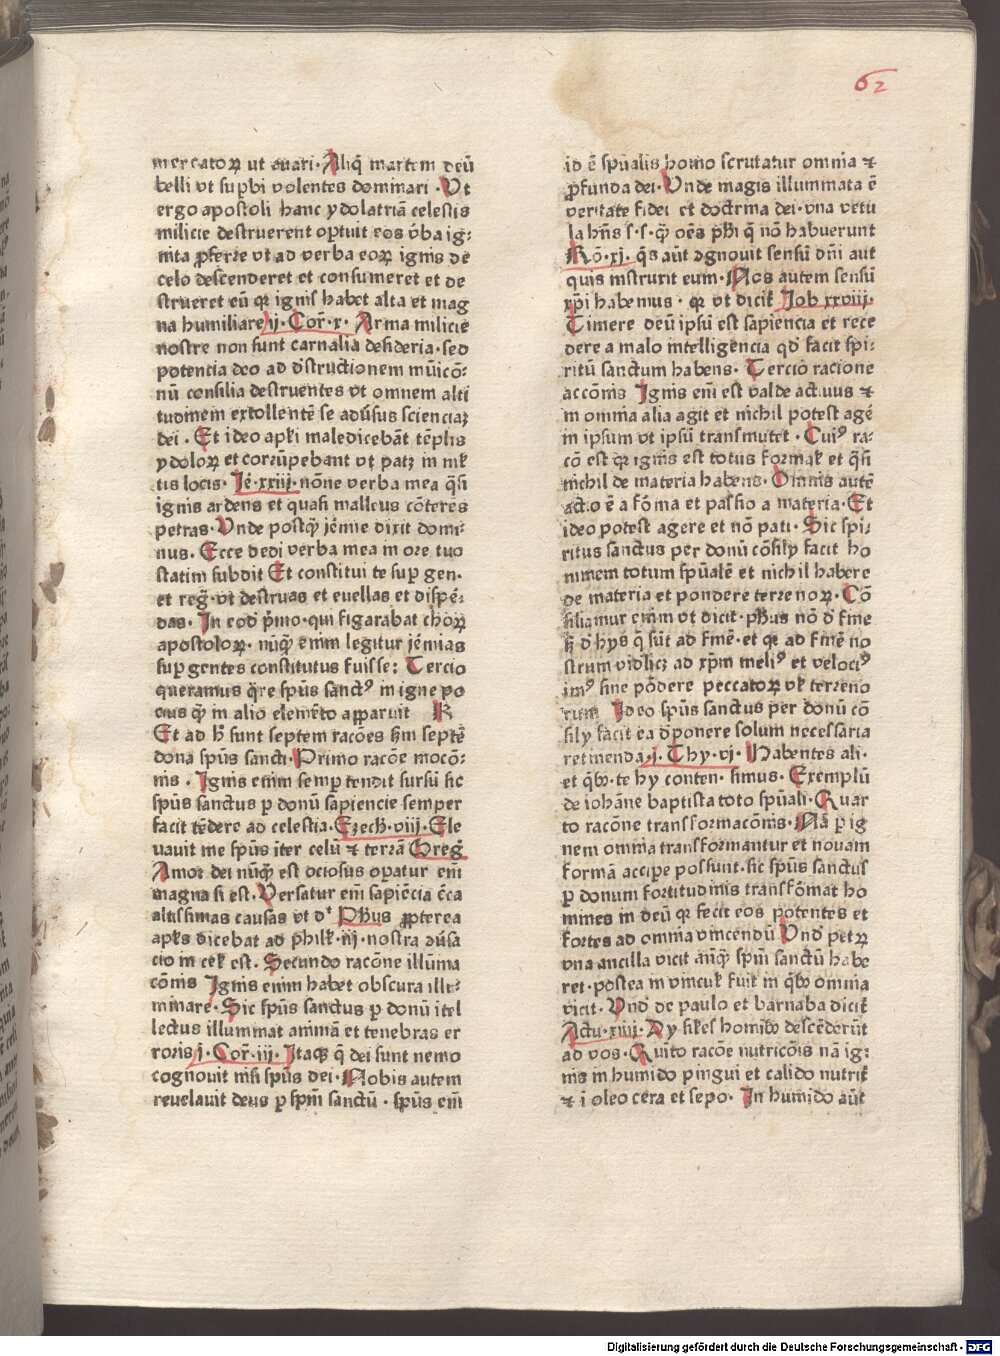 62
mercatoꝝ ut auari · Aliq̄ martem deū
belli vt supbi volentes dominari · Ut
ergo apostoli hanc ydolatriā celestis
milicie destruerent oportuit eos v̄ba ig:
nita ꝓferre vt ad verba eoꝝ ignis de
celo descenderet et consumeret et de
strueret eū qꝛ ignis habet alta et mag
na humiliare ij · Coꝛ · x · Arma milicie
nostre non sunt carnalia desideria · sed
potencia deo ad dstructionem municō:
nū consilia destruentes vt omnem alti
tudinem extollentē se aduſus scienciaȝ
dei · Et ideo apl̄i maledicebāt tēplis
ydoloꝝ et corrūpebant vt patȝ in ml̄
tis locis · Je · xxiij · nōne verba mea q̄si
ignis ardens et quasi malleus cōterēs
petras · Unde postq̄ jēmie dixit domi:
nus · Ecce dedi verba mea in ore tuo
statim subdit Et constitui te sup gen ·
et reḡ · vt destruas et euellas et dispē:
das · In eod p̄mo · qui figarabat choꝝ
apostoloꝝ · nūq̄ enim legitur jēmias
sup gentes constitutus fuisse: Tercio
queramus q̄re spūs sanctꝰ in igne po
cius q̄ in alio elemēto apparuit R
Et ad h̄ sunt septem racōes s̄m septē
dona spūs sancti · Primo racōe mocō:
nis · Ignis enim semp tendit sursū sic
spūs sanctus p donū sapiencie semper
facit tēdere ad celestia · Ezech · viij · Ele
uauit me spūs iter celū ⁊ terrā Greḡ
Amor dei nūq̄ est ociosus opatur em̄
magna si est · Versatur em̄ sapiēcia c̄ca
altissimas causas vt dt Ph̄us ꝓpterea
apl̄s dicebat ad phil̄ · iij · nostra ꝯūsa
cio in cel̄ est · Secundo racōne illūma
cōnis Ignis enim habet obscura illu:
minare · Sic spūs sanctus p donū itel
lectus illuminat animā et tenebras er
roris j · Coꝛ · iij · Itaqȝ q̄ dei sunt nemo
cognouit nisi spūs dei · Nobis autem
reuelauit deus p spm̄ sanctū · spūs em̄
id ē spūalis homo scrutatur omnia ⁊
ꝓfunda dei · Unde magis illuminata ē
veritate fidei et doctrina dei · vna vetu
la hn̄s s · s · q̄ oēs ph̄i q̄ nō habuerunt
Rō · xj · q̄s aūt ꝯgnouit sensū dn̄i aut
quis instruxit eum · Nos autem sensū
xp̄i habemus · qꝛ vt dicit Job xxviij ·
Timere deū ipsū est sapiencia et rece
dere a malo intelligencia qd̄ facit spi:
ritū sanctum habens · Tercio racione
accōnis Ignis em̄ est valde actiuus ⁊
in omnia alia agit et nichil potest agē
in ipsum vt ipsū transmutet · Cuiꝰ ra:
cō est qꝛ ignis est totus formal̄ et q̄si
nichil de materia habens · Omnis autē
actio ē a foma et passio a materia · Et
ideo potest agere et nō pati · Sic spi:
ritus sanctus per donū cōsily facit ho
minem totum spūalē et nichil habere
de materia et pondere terrenoꝝ · Cō
siliamur enim vt dicit · ph̄us nō d̄ fine
s̄ d̄ hys q̄ sūt ad finē · et qꝛ ad finē no
strum vidlicȝ ad xpm̄ meliꝰ et velociꝰ
imꝰ sine pōdere peccatoꝝ vl̄ terreno
rum Ideo spūs sanctus per donū cō
sily facit ea dponere solum necessaria
retinenda · j · Thy · vj · Habentes ali ·
et qb · te hy conten · simus · Exemplū
de iohāne baptista toto spūali · Quar
to racōne transformacōnis · Nā p ig
nem omnia transformantur et nouam
formā accipe possunt · sic spūs sanctus
p donum fortitudinis transfōmat ho
mines in deū qꝛ fecit eos potentes et
fortes ad omnia vincendū Und petꝝ
vna ancilla vicit anq̄ spm̄ sanctū habe
ret · postea in vincul̄ fuit in qb omnia
vicit · Und de paulo et barnaba dicit̄
Actu · xiiij · Dy siles homibo descēderūt
ad vos · Quīto racōe nutricōis nā ig:
nis in humido pingui et calido nutrit̄
⁊ i oleo cera et sepo · In humido aūt
Digitalisierung gefördert durch die Deutsche Forschungsgemeinschaft - DFG